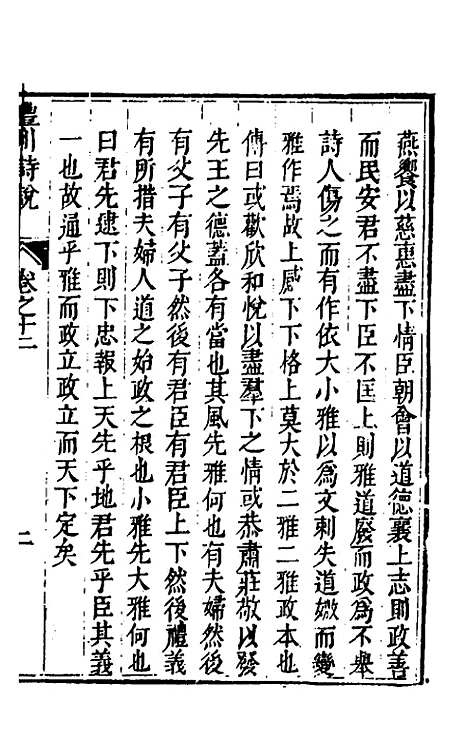 燕饗以慈惠盡下情臣朝會以道德襄上志則政善
而民安君不盡下臣不匡上則雅道廢而政爲不舉
詩人傷之而有作依大小雅以爲文刺失道媺而變
雅作焉故上感下下格上莫大於二雅二雅政本也
傳曰或歡欣和悅以盡羣下之情或恭肅莊敬以發
先王之德蓋各有當也其風先雅何也有夫婦然後
有父子有父子然後有君臣有君臣上下然後禮義
有所措夫婦人道之始政之根也小雅先大雅何也
曰君先逮下則下忠報上天先乎地君先乎臣其義
一也故通乎雅而政立政立而天下定矣
詩說
卷之十二
二